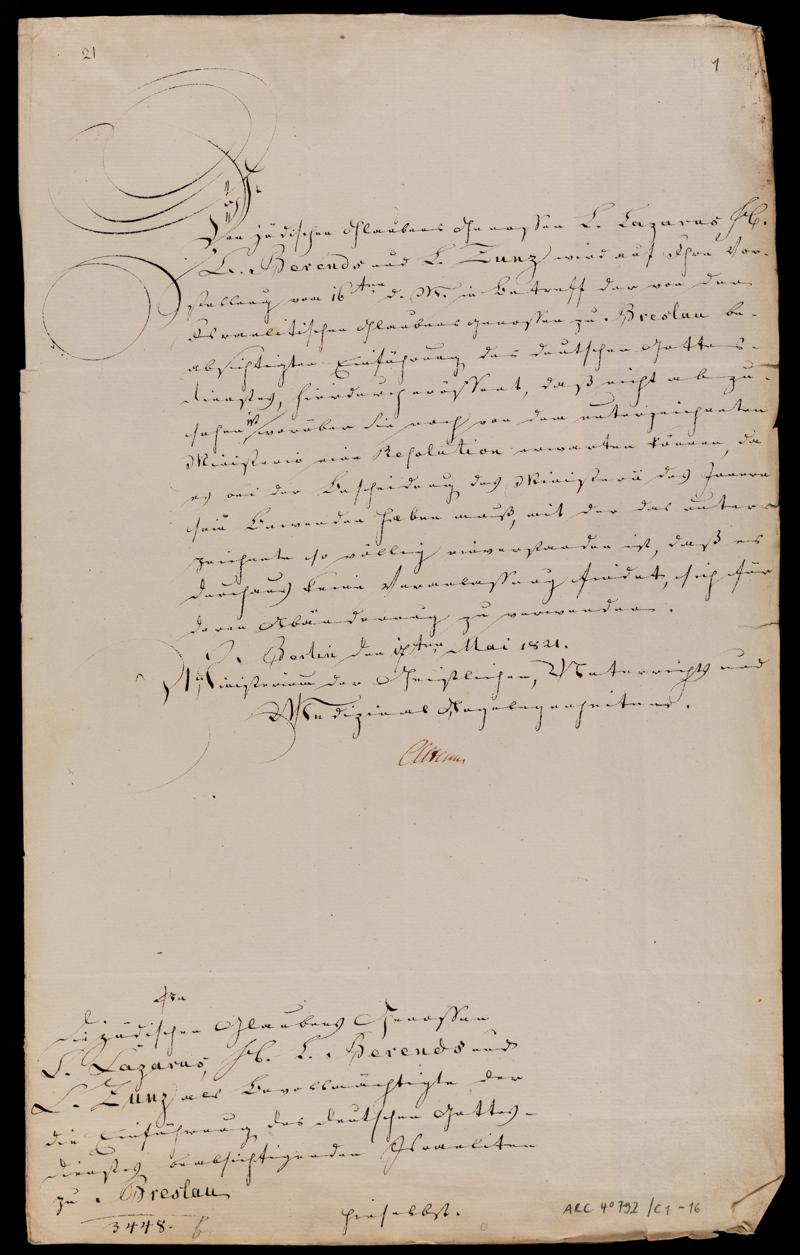 21
1
Den jüdischen Glaubens Genossen L. Lazarus, H.
L. Berends und L. Zunz wird auf Ihre Vor-
stellung vom 16ten d. M. in Betreff der von den
Israelitischen Glaubensgenossen zu Breslau be-
absichtigten Einführung des deutschen Gottes-
dienstes, hierdurch eröffnet, daß nicht abzu-
sehen ist, worüber Sie noch von dem unterzeichneten
Ministerio eine Resolution erwarten können, da
es bei der Bescheidung des Ministerii des Innern
sein Bewenden haben muß, mit der das unter-
zeichnete so völlig einverstanden ist, daß es
durchaus keine Veranlassung findet, sich für
deren Abänderung zu verwenden.
Berlin den Mai 1821.
Ministerium der Geistlichen, Unterrichts und
Medizinal Angelegenheiten.
An
die jüdischen Glaubens Genossen
L. Lazarus, H. L. Berends und
L. Zunz als Bevollmächtigte der
die Einführung des deutschen Gottes-
dienstes beabsichtigenden Israeliten
zu Breslau
hieselbst.
3448.
ARC 4° 792 / C1 - 16